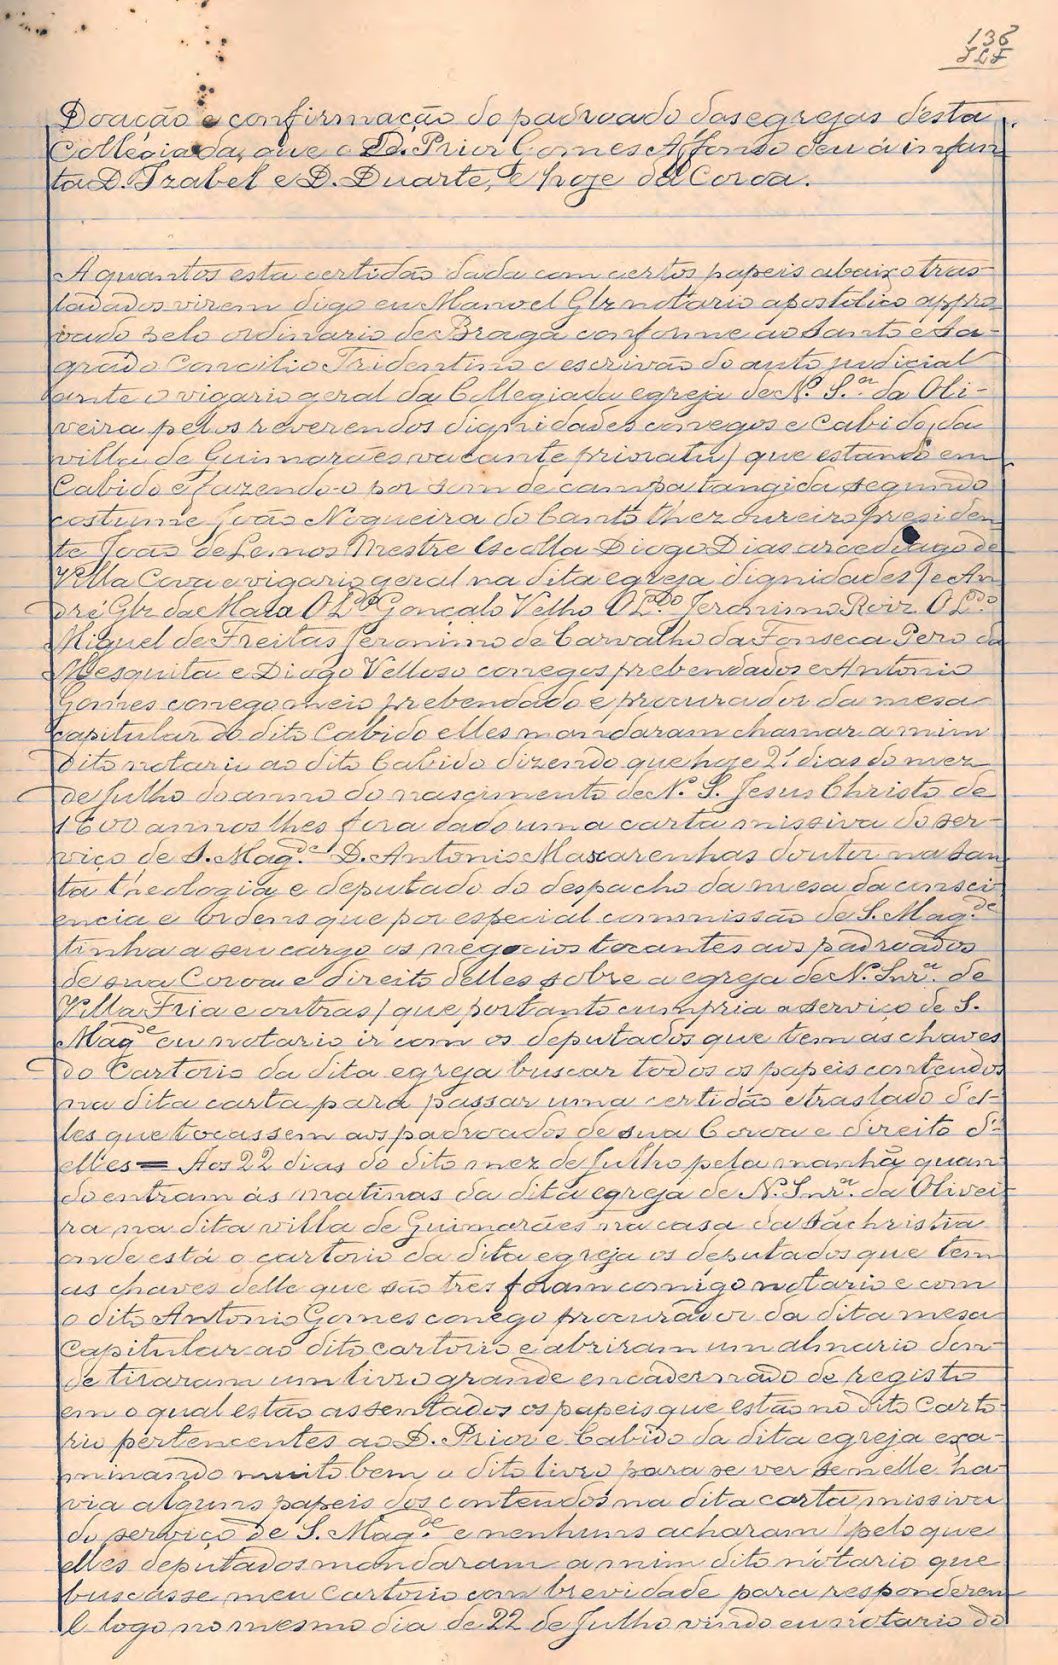 136
Doação e confirmação do padroado das egrejas d'esta
Collegiada, que o D. Prior Gomes Affonso deu á infan
ta D. Izabel e D. Duarte, e hoje da Coroa.
A quantos esta certidão dada com certos papeis abaixo tras-
ladados virem digo eu Manoel Glz notario apostolico appro
vado pelo ordinario de Braga conforme ao Santo e Sa-
grado Concilio Tridentino e escrivão do auto judicial
ante o vigario geral da Collegiada egreja de N. S.ra da Oli-
veira pelos reverendos dignidades conegos e Cabido, da
villa de Guimarães vacante prioratu) que estando em
Cabido e fazendo-o por som de campa tangida segundo
costume João Nogueira do Canto thezoureiro presiden
te João de Lemos Mestre Escolla Diogo Dias arcediago de
Villa Cova e vigario geral na dita egreja dignidades) e An
dré Glz da Maia O L.do Gonçalo Velho O L.do Jeronimo Roiz O L.do
Miguel de Freitas Jeronimo de Carvalho da Fonseca Pero da
Mesquita e Diogo Velloso conegos prebendados e Antonio
Gomes conego meio prebendado e procurador da mesa
capitular do dito Cabido elles mandaram chamar a mim
dito notario ao dito Cabido dizendo que hoje 21 dias do mez
de Julho do anno do nascimento de N. S. Jesus Christo de
1600 annos lhes fora dado uma carta missiva do ser-
viço de S. Mag.de D. Antonio Mascarenhas doutor na San
ta theologia e deputado do despacho da mesa da consci
encia e Ordens que por especial commissão de S. Mag.de
tinha a seu cargo os negocios tocantes aos padroados
de sua Coroa e direito delles sobre a egreja de N. Snr.a de
Villa Fria e outras) que portanto cumpria a serviço de S.
Mag.de eu notario ir com os deputados que tem as chaves
do Cartorio da dita egreja buscar todos os papeis contendos
na dita carta para passar uma certidão e traslado del-
les que tocassem aos padroados de sua Coroa e direito d'-
elles = Aos 22 dias do dito mez de Julho pela manhã quan
do entram ás matinas da dita egreja de N. Snr.a da Olivei
ra na dita villa de Guimarães na casa da Sachristia
onde está o cartorio da dita egreja os deputados que tem
as chaves delle que são tres foram comigo notario e com
o dito Antonio Gomes conego procurador da dita mesa
Capitular ao dito cartorio e abriram um almario don-
de tiraram um livro grande encadernado de registo
em o qual estão assentados os papeis que estão no dito Carto
rio pertencentes ao D. Prior e Cabido da dita egreja exa-
minando muito bem o dito livro para se ver se nelle ha
via alguns papeis dos contendos na dita carta missiva
do serviço de S. Mag.de e nenhuns acharam) pelo que
elles deputados mandaram a mim dito notario que
buscasse meu Cartorio com brevidade para responderem
E logo no mesmo dia de 22 de Julho vindo eu notario do